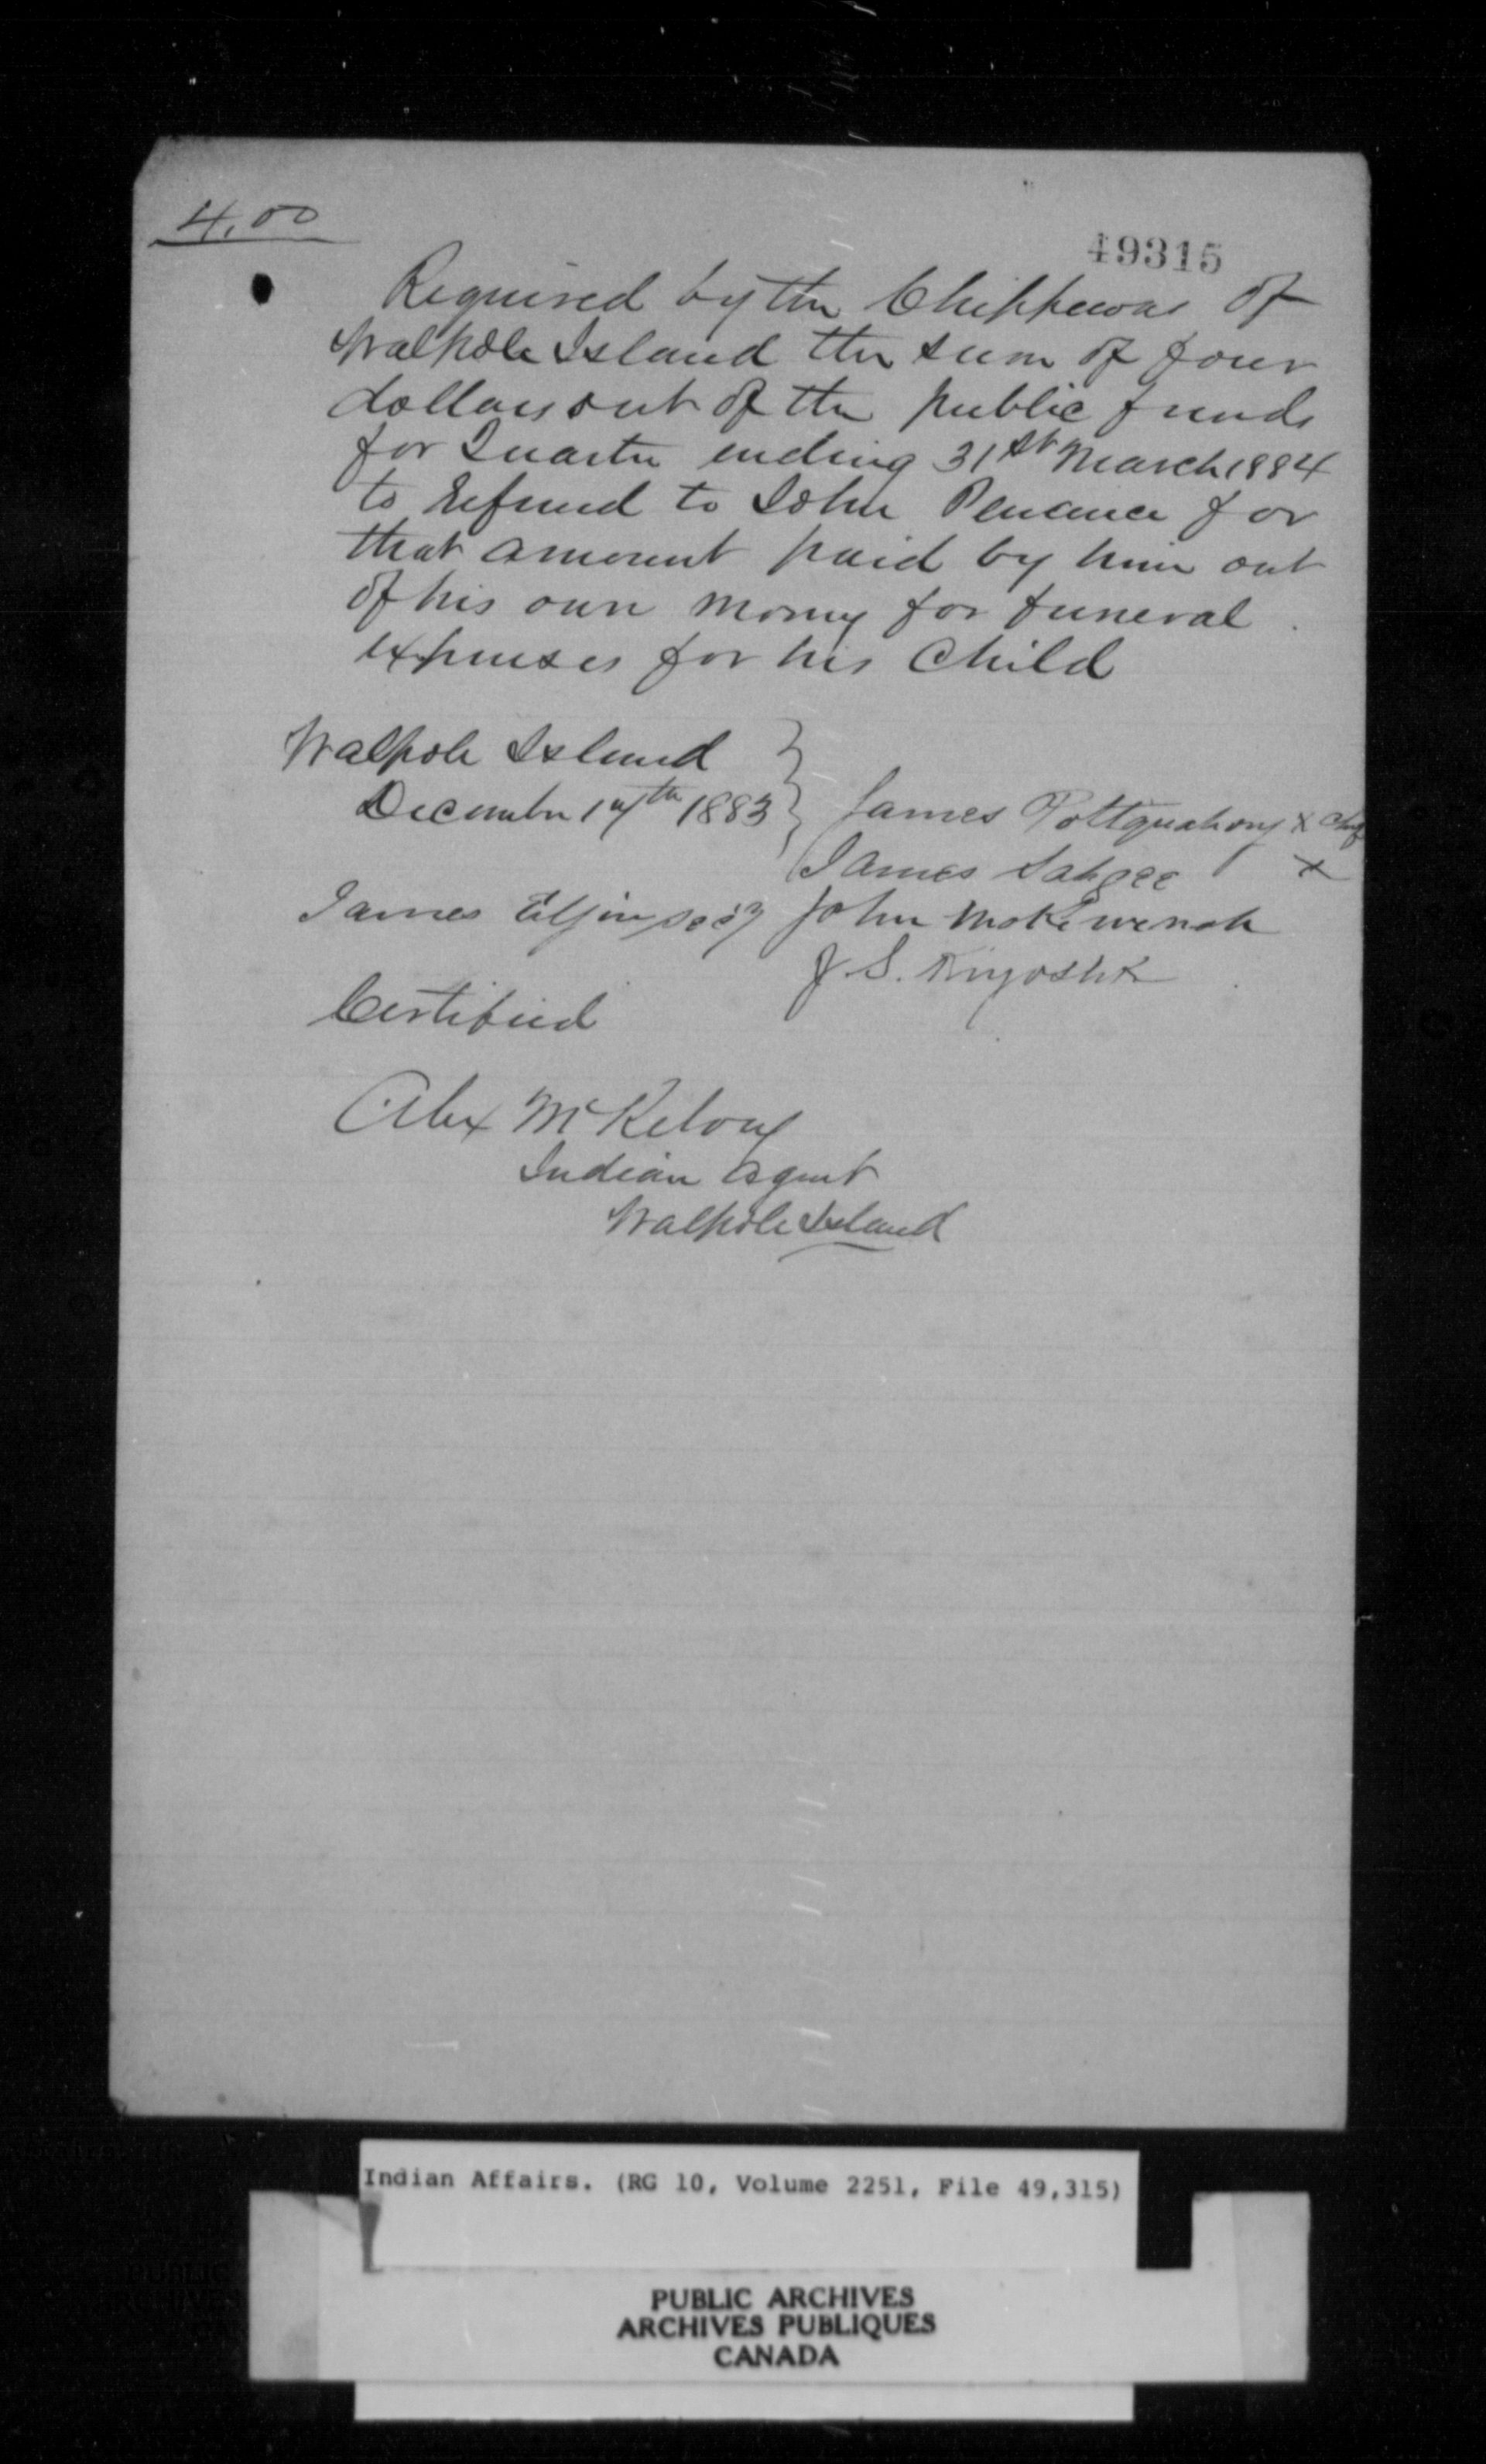 4.00
49315
Required by the Chippewas of
Walpole Island the sum of four
dollars out of the public funds
for Quarter ending 31st March 1884
to refund to John Penance for
that amount paid by him out
of his own money for funeral
expenses for his Child
Walpole Island
December 14th 1883
James Pottquahong x Chief
James Sahgee x
James Elgin Secy John
J. S. Kiyoshk
Certified
Alex McKelvey
Indian Agent
Walpole Island
Indian Affairs. (RG 10, Volume 2251, File 49,315)
PUBLIC ARCHIVES
ARCHIVES PUBLIQUES
CANADA